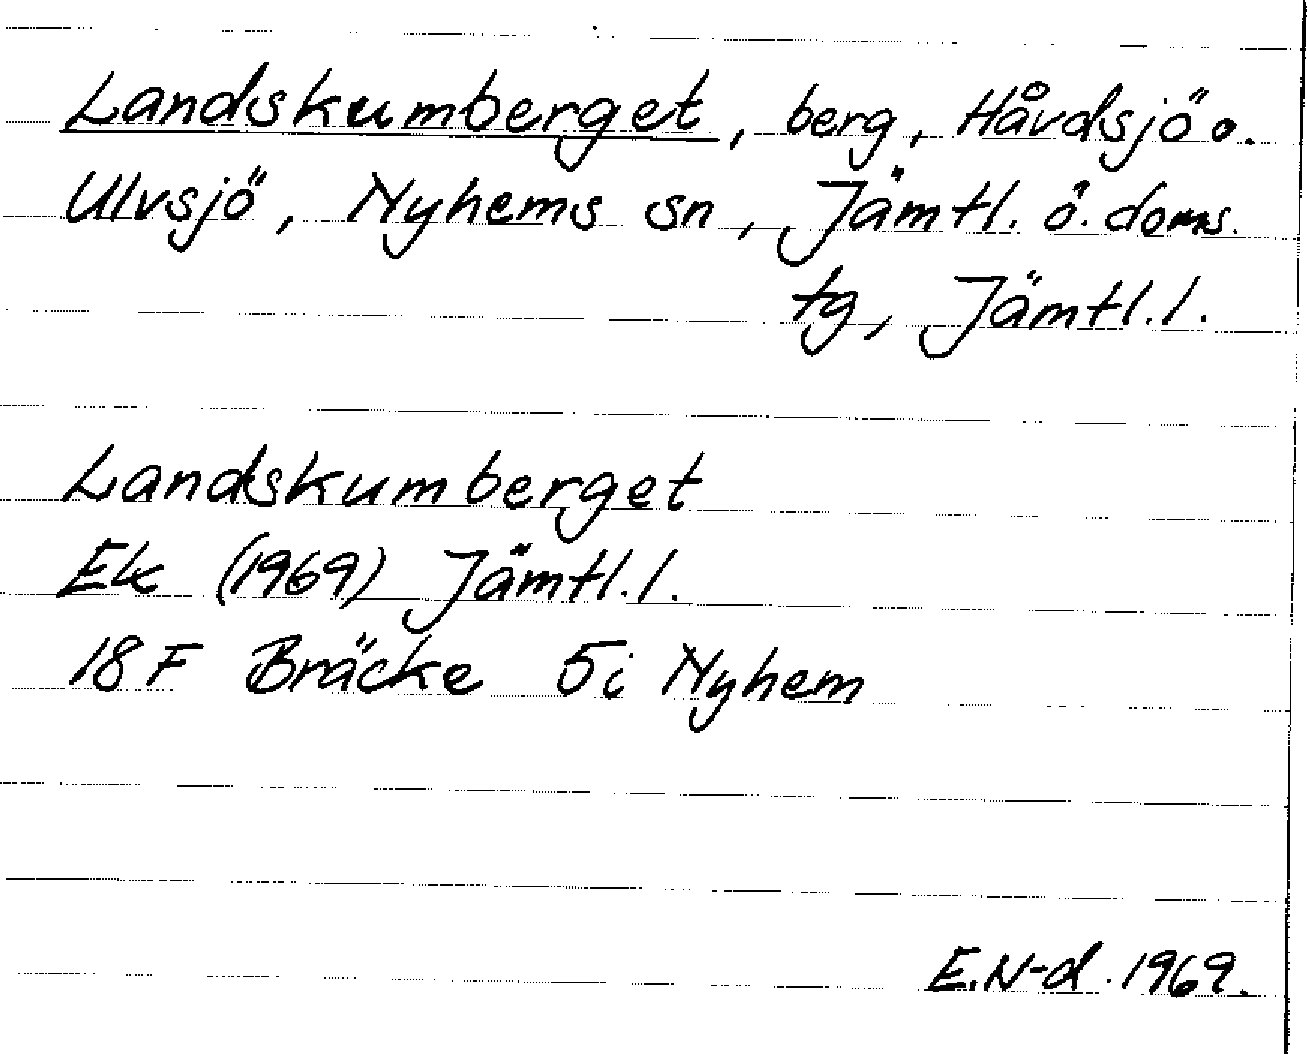 Landskumberget, berg, Håvdsjö o.
Ulvsjö, Nyhems sn, Jämtl. ö. doms.
tg, Jämtl. l.
Landskumberget
Ek (1969) Jämtl. l.
18 F Bräcke 5i Nyhem
E.N-d. 1969.